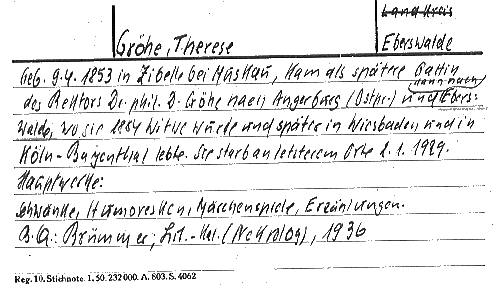 Landkreis
Gröhe, Therese
Eberswalde
Geb. 9.4. 1853 in Zibelle bei Muskau, kam als spätere Gattin
dann nach
des Rektors Dr. phil. D. Gröhe nach Angerburg (Ostpr.) und Ebers-
walde, wo sie 1884 Witwe wurde und später in Wiesbaden und in
Köln-Bayenthal lebte. Sie starb an letzterem Orte 2.1.1929.
Hauptwerke:
Schwänke, Humoresken, Märchenspiele, Erzählungen.
B.A: Brümmer; Lit.-Kal. (Nekrolog), 1936
Reg. 10. Stichnote. I. 50. 232000. A. 803. S. 4062